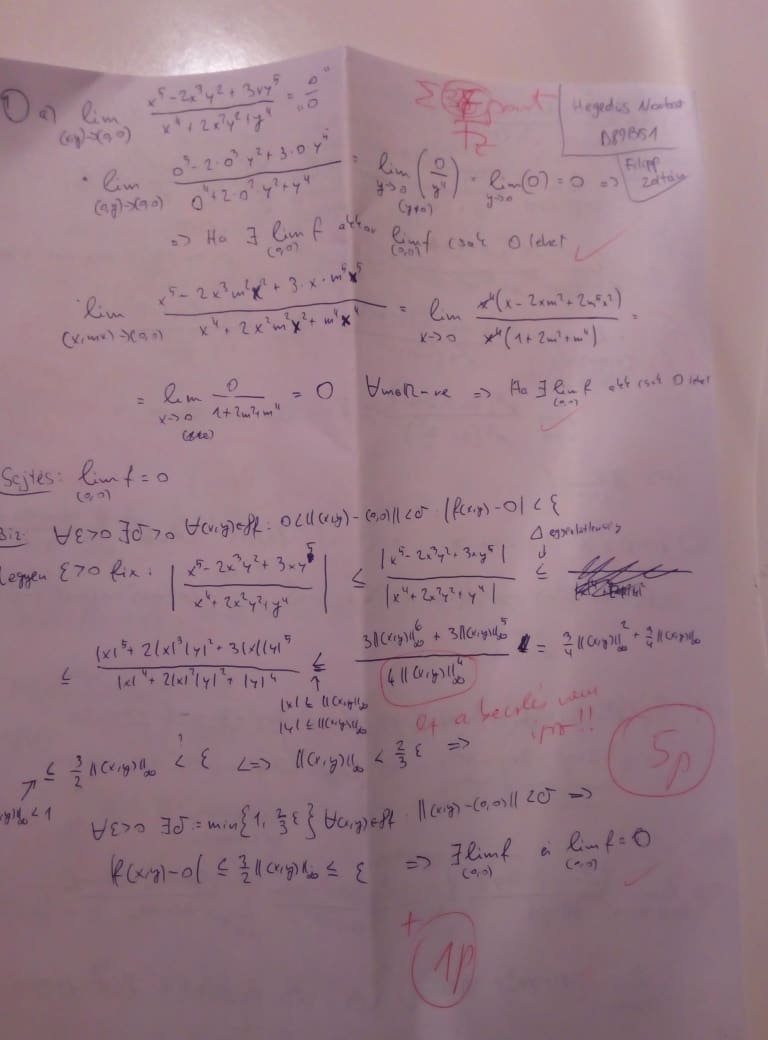 1) a) lim (x,y)→(0,0) (x⁵ - 2x³y² + 3xy⁵)/(x⁴ + 2x²y² + y⁴) = "0/0"
Σ pont
Hegedüs Norbert
D89B51
Filipp Zoltán
• lim (0,y)→(0,0) (0⁵ - 2·0³y² + 3·0 y⁵)/(0⁴ + 2·0²y² + y⁴) = lim y→0 (y≠0) (0/y⁴) = lim y→0 (0) = 0 =>
=> Ha ∃ lim (0,0) f akkor lim (0,0) f csak 0 lehet
lim (x,mx)→(0,0) (x⁵ - 2x³m²x² + 3·x·m⁵x⁵)/(x⁴ + 2x²m²x² + m⁴x⁴) = lim x→0 x⁴(x - 2xm² + 2m⁵x²)/x⁴(1 + 2m² + m⁴) =
= lim x→0 (x≠0) 0/(1 + 2m² + m⁴) = 0 ∀m∈ℝ-re => Ha ∃ lim (0,0) f akk csak 0 lehet
Sejtés: lim (0,0) f = 0
Biz: ∀ε>0 ∃δ>0 ∀(x,y)∈Df: 0<||(x,y) - (0,0)||<δ: |f(x,y) - 0| < ε
Δ egyenlőtlenség
Legyen ε>0 fix: |(x⁵ - 2x³y² + 3xy⁵)/(x⁴ + 2x²y² + y⁴)| ≤ |x⁵ - 2x³y² + 3xy⁵|/|x⁴ + 2x²y² + y⁴| ≤
≤ (|x|⁵ + 2|x|³|y|² + 3|x||y|⁵)/(|x|⁴ + 2|x|²|y|² + |y|⁴) ≤ (3||(x,y)||∞⁶ + 3||(x,y)||∞⁵)/(4||(x,y)||∞⁴) = 3/4 ||(x,y)||∞² + 3/4 ||(x,y)||∞
|x| ≤ ||(x,y)||∞
|y| ≤ ||(x,y)||∞
Ez a becslés nem igaz!!
5p
≤ 3/2 ||(x,y)||∞ <? ε <=> ||(x,y)||∞ < 2/3 ε =>
(x,y)||∞ < 1
∀ε>0 ∃δ = min{1, 2/3 ε} ∀(x,y)∈Df: ||(x,y) - (0,0)|| < δ =>
|f(x,y) - 0| ≤ 3/2 ||(x,y)||∞ ≤ ε => ∃ lim (0,0) f és lim (0,0) f = 0
+
1p